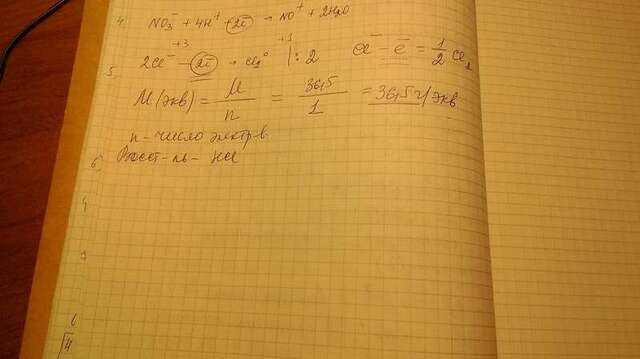 4. NO₃⁻ + 4H⁺ + 2ē → NO⁺ + 2H₂O
+3 +1
2Cl⁻ - 2ē → Cl₂⁰ | : 2 Cl⁻ - ē = 1/2 Cl₂
5. M(экв) = M/n = 36,5/1 = 36,5 г/экв
n - число электр-в
6. Восст-ль - HCl
4
6
4